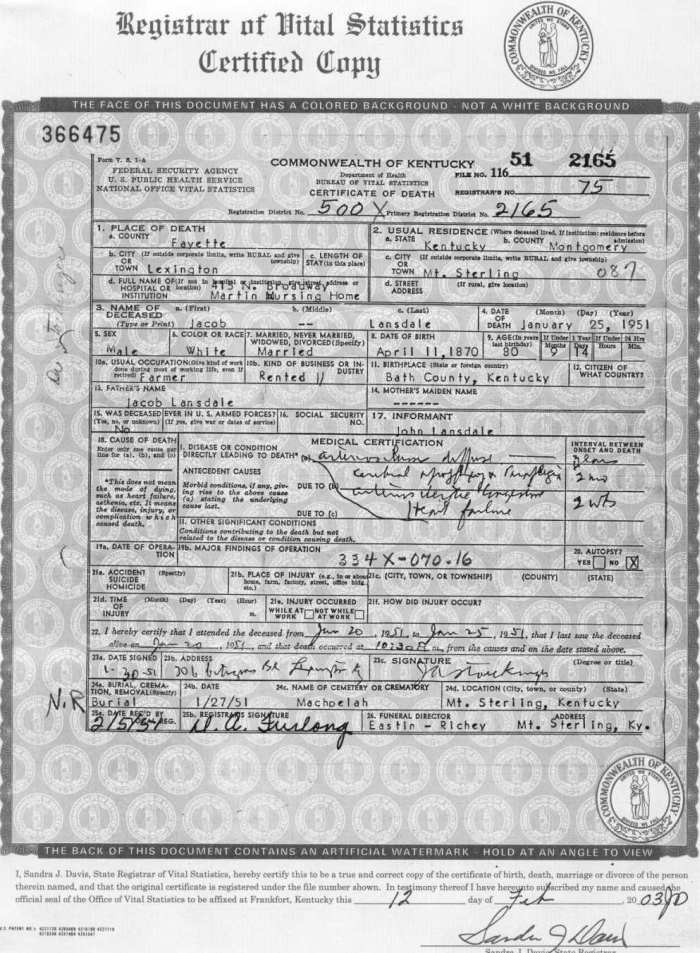 Registrar of Vital Statistics
Certified Copy
COMMONWEALTH OF KENTUCKY
THE FACE OF THIS DOCUMENT HAS A COLORED BACKGROUND - NOT A WHITE BACKGROUND
366475
Form V. S. 1-A
FEDERAL SECURITY AGENCY
U. S. PUBLIC HEALTH SERVICE
NATIONAL OFFICE VITAL STATISTICS
COMMONWEALTH OF KENTUCKY
Department of Health
BUREAU OF VITAL STATISTICS
CERTIFICATE OF DEATH
51 2165
FILE NO. 116
REGISTRAR'S NO. 75
Registration District No. 500 X Primary Registration District No. 2165
1. PLACE OF DEATH
a. COUNTY Fayette
2. USUAL RESIDENCE (Where deceased lived. If institution: residence before admission)
a. STATE Kentucky b. COUNTY Montgomery
b. CITY (If outside corporate limits, write RURAL and give township)
OR TOWN Lexington
c. LENGTH OF STAY (in this place)
c. CITY (If outside corporate limits, write RURAL and give township)
OR TOWN Mt. Sterling 087
d. FULL NAME OF (If not in hospital or institution, give street address or location)
HOSPITAL OR INSTITUTION 413 N. Broadway
Martin Nursing Home
d. STREET ADDRESS (If rural, give location)
3. NAME OF DECEASED (Type or Print)
a. (First) Jacob b. (Middle) -- c. (Last) Lansdale
4. DATE OF DEATH (Month) (Day) (Year) January 25, 1951
5. SEX Male
6. COLOR OR RACE White
7. MARRIED, NEVER MARRIED, WIDOWED, DIVORCED (Specify) Married
8. DATE OF BIRTH April 11, 1870
9. AGE (In years last birthday) 80 If Under 1 Year Months 9 Days 14 If Under 24 Hrs Hours Min.
10a. USUAL OCCUPATION (Give kind of work done during most of working life, even if retired) Farmer
10b. KIND OF BUSINESS OR INDUSTRY Rented
11. BIRTHPLACE (State or foreign country) Bath County, Kentucky
12. CITIZEN OF WHAT COUNTRY?
13. FATHER'S NAME Jacob Lansdale
14. MOTHER'S MAIDEN NAME ------
15. WAS DECEASED EVER IN U. S. ARMED FORCES? (Yes, no, or unknown) (If yes, give war or dates of service) No
16. SOCIAL SECURITY NO.
17. INFORMANT John Lansdale
18. CAUSE OF DEATH
Enter only one cause per line for (a), (b), and (c)
*This does not mean the mode of dying, such as heart failure, asthenia, etc. It means the disease, injury, or complication which caused death.
MEDICAL CERTIFICATION
I. DISEASE OR CONDITION
DIRECTLY LEADING TO DEATH* (a)
INTERVAL BETWEEN ONSET AND DEATH
years
ANTECEDENT CAUSES
Morbid conditions, if any, giving rise to the above cause (a) stating the underlying cause last.
DUE TO (b)
2 mo
2 wks
heart failure
DUE TO (c)
II. OTHER SIGNIFICANT CONDITIONS
Conditions contributing to the death but not related to the disease or condition causing death.
19a. DATE OF OPERATION
19b. MAJOR FINDINGS OF OPERATION
334X-070.16
20. AUTOPSY?
YES NO X
21a. ACCIDENT SUICIDE HOMICIDE (Specify)
21b. PLACE OF INJURY (e.g., in or about home, farm, factory, street, office bldg., etc.)
21c. (CITY, TOWN, OR TOWNSHIP) (COUNTY) (STATE)
21d. TIME OF INJURY (Month) (Day) (Year) (Hour) m.
21e. INJURY OCCURRED WHILE AT WORK NOT WHILE AT WORK
21f. HOW DID INJURY OCCUR?
22. I hereby certify that I attended the deceased from Jan 20, 1951, to Jan 25, 1951, that I last saw the deceased
alive on Jan 20, 1951, and that death occurred at m., from the causes and on the date stated above.
23a. DATE SIGNED 1-30-51
23b. ADDRESS 301
23c. SIGNATURE (Degree or title)
24a. BURIAL, CREMATION, REMOVAL (Specify) Burial
24b. DATE 1/27/51
24c. NAME OF CEMETERY OR CREMATORY Machpelah
24d. LOCATION (City, town, or county) (State) Mt. Sterling, Kentucky
N.R
25a. DATE REC'D BY LOCAL REG. 2/5/51
25b. REGISTRAR'S SIGNATURE D. A. Furlong
26. FUNERAL DIRECTOR ADDRESS
Eastin - Richey Mt. Sterling, Ky.
COMMONWEALTH OF KENTUCKY
THE BACK OF THIS DOCUMENT CONTAINS AN ARTIFICIAL WATERMARK - HOLD AT AN ANGLE TO VIEW
I, Sandra J. Davis, State Registrar of Vital Statistics, hereby certify this to be a true and correct copy of the certificate of birth, death, marriage or divorce of the person
therein named, and that the original certificate is registered under the file number shown. In testimony thereof I have hereunto subscribed my name and caused the
official seal of the Office of Vital Statistics to be affixed at Frankfort, Kentucky this 12 day of Feb, 2003
Sandra J Davis
Sandra J. Davis State Registrar